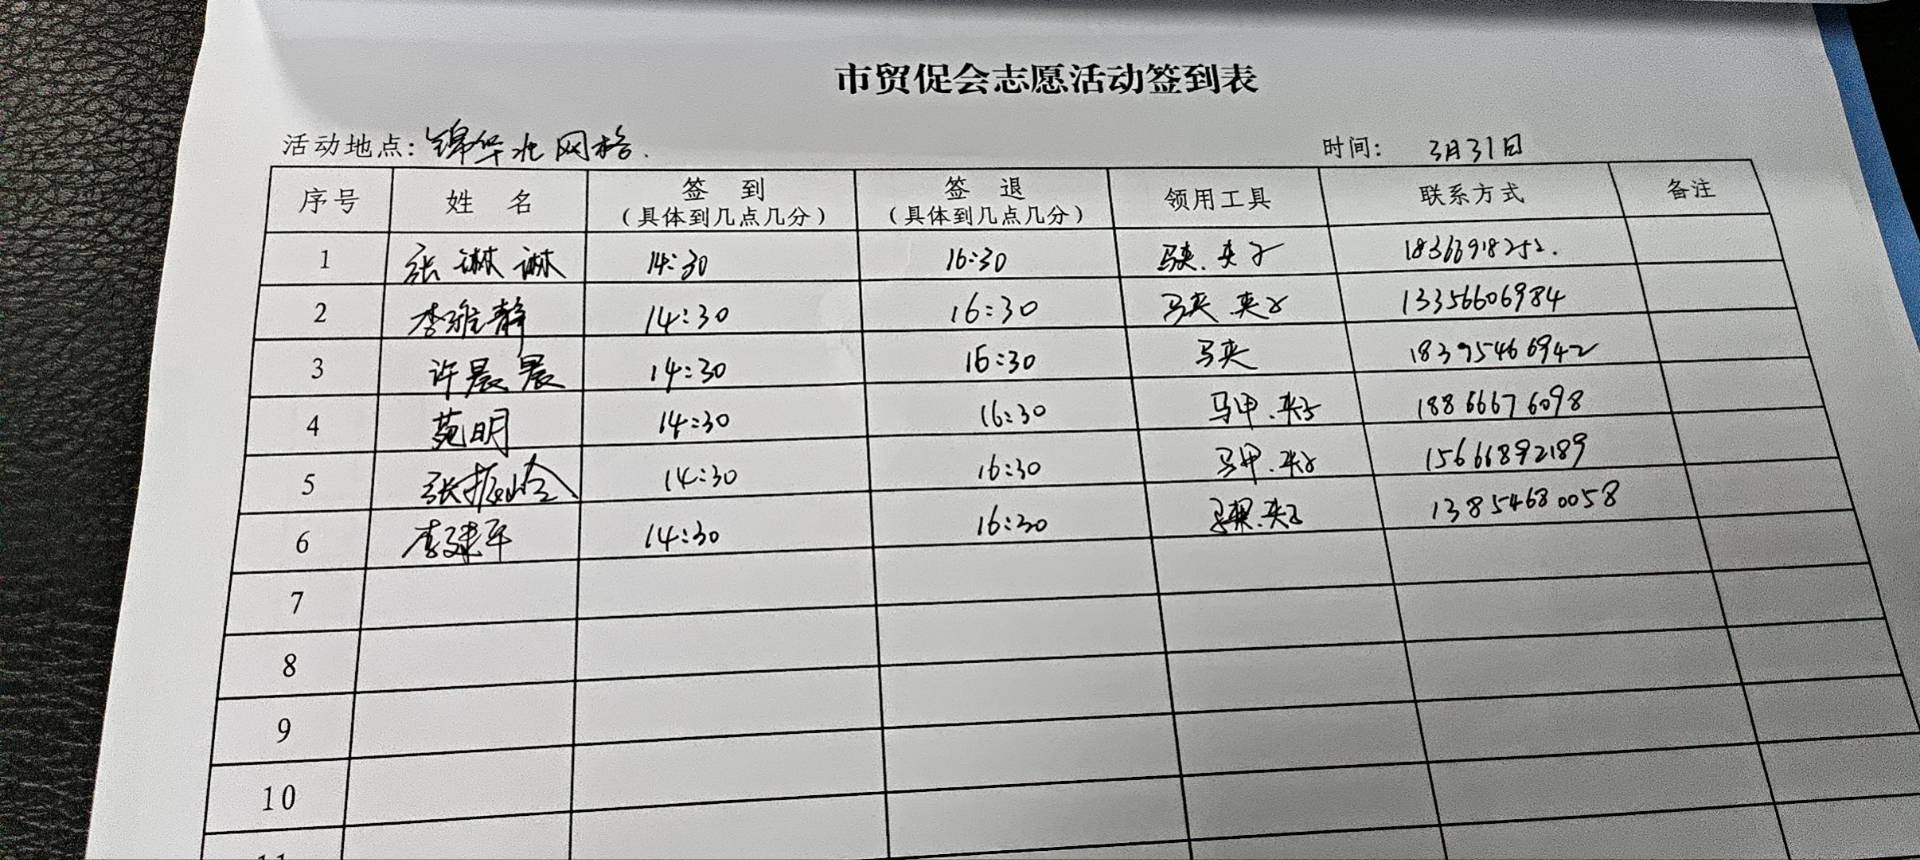 市贸促会志愿活动签到表
活动地点: 锦华北网格. 时间: 3月31日
序号 姓名 签到 (具体到几点几分) 签退 (具体到几点几分) 领用工具 联系方式 备注
1 张琳琳 14:30 16:30 马夹.夹子
2 李雅静 14:30 16:30 马夹 夹子 13356606984
3 许晨晨 14:30 16:30 马夹 18395466942
4 苑明 14:30 16:30 马甲.夹子 18866676098
5 张振岭 14:30 16:30 马甲.夹子 15666892189
6 李建平 14:30 16:30 夹子 13854680058
7
8
9
10
11